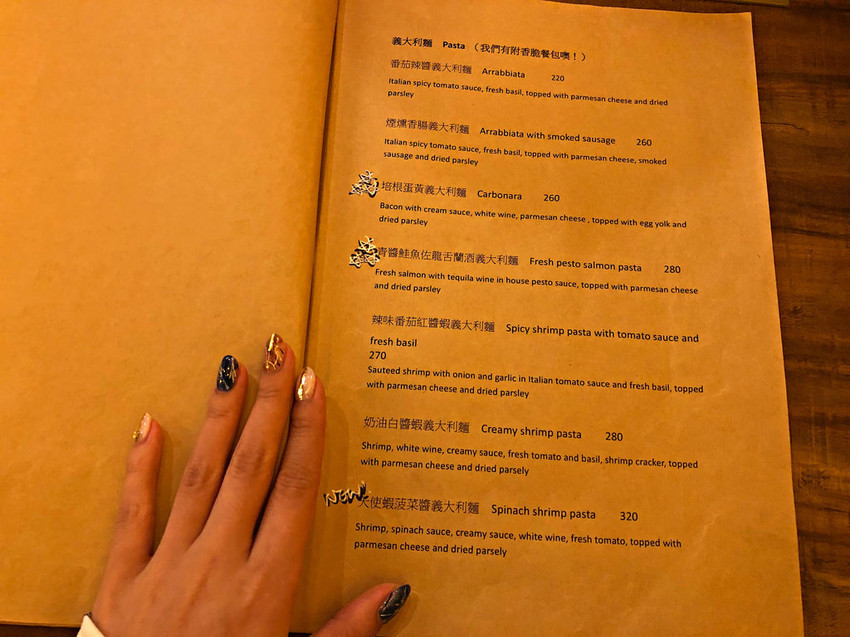 義大利麵 Pasta (我們有附香脆餐包噢！)
番茄辣醬義大利麵 Arrabbiata 220
Italian spicy tomato sauce, fresh basil, topped with parmesan cheese and dried
parsley
煙燻香腸義大利麵 Arrabbiata with smoked sausage 260
Italian spicy tomato sauce, fresh basil, topped with parmesan cheese, smoked
sausage and dried parsley
培根蛋黃義大利麵 Carbonara 260
Bacon with cream sauce, white wine, parmesan cheese , topped with egg yolk and
dried parsley
青醬鮭魚佐龍舌蘭酒義大利麵 Fresh pesto salmon pasta 280
Fresh salmon with tequila wine in house pesto sauce, topped with parmesan cheese
and dried parsley
辣味番茄紅醬蝦義大利麵 Spicy shrimp pasta with tomato sauce and
fresh basil
270
Sauteed shrimp with onion and garlic in Italian tomato sauce and fresh basil, topped
with parmesan cheese and dried parsley
奶油白醬蝦義大利麵 Creamy shrimp pasta 280
Shrimp, white wine, creamy sauce, fresh tomato and basil, shrimp cracker, topped
with parmesan cheese and dried parsely
NEW! 天使蝦菠菜醬義大利麵 Spinach shrimp pasta 320
Shrimp, spinach sauce, creamy sauce, white wine, fresh tomato, topped with
parmesan cheese and dried parsely